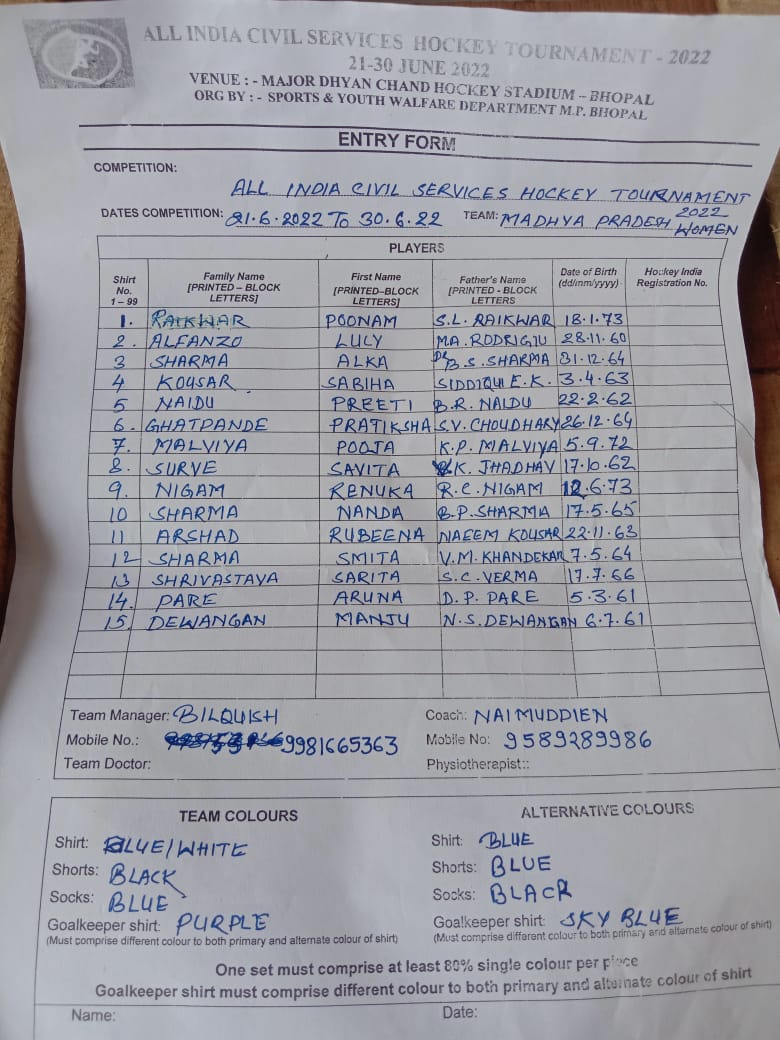 ALL INDIA CIVIL SERVICES HOCKEY TOURNAMENT - 2022
21-30 JUNE 2022
VENUE : - MAJOR DHYAN CHAND HOCKEY STADIUM – BHOPAL
ORG BY : - SPORTS & YOUTH WALFARE DEPARTMENT M.P. BHOPAL
ENTRY FORM
COMPETITION:
ALL INDIA CIVIL SERVICES HOCKEY TOURNAMENT 2022
DATES COMPETITION: 21.6.2022 TO 30.6.22 TEAM: MADHYA PRADESH WOMEN
PLAYERS
Shirt No. 1 – 99 Family Name [PRINTED–BLOCK LETTERS] First Name [PRINTED–BLOCK LETTERS] Father's Name [PRINTED - BLOCK LETTERS Date of Birth (dd/mm/yyyy) Hockey India Registration No.
1. RAIKWAR POONAM S.L. RAIKWAR 18.1.73
2. ALFANZO LULY MA. RODRIGIU 28.11.60
3 SHARMA ALKA B.S. SHARMA 31.12.64
4 KOUSAR SABIHA SIDDIQUI E.K. 3.4.63
5 NAIDU PREETI B.R. NAIDU 22.2.62
6. GHATPANDE PRATIKSHA S.V. CHOUDHARY 26.12.64
7. MALVIYA POOJA K.P. MALVIYA 5.9.72
8. SURVE SAVITA K. JHADHAV 17.10.62
9. NIGAM RENUKA R.C. NIGAM 12.6.73
10 SHARMA NANDA B.P. SHARMA 17.5.65
11 ARSHAD RUBEENA NAEEM KOUSAR 22.11.63
12 SHARMA SMITA V.M. KHANDEKAR 7.5.64
13 SHRIVASTAVA SARITA S.C. VERMA 17.7.66
14. PARE ARUNA D.P. PARE 5.3.61
15. DEWANGAN MANJU N.S. DEWANGAN 6.7.61
Team Manager: BILQUISH Coach: NAIMUDDIEN
Mobile No.: 9981665363 Mobile No: 9589289986
Team Doctor: Physiotherapist::
TEAM COLOURS ALTERNATIVE COLOURS
Shirt: BLUE/WHITE Shirt: BLUE
Shorts: BLACK Shorts: BLUE
Socks: BLUE Socks: BLACK
Goalkeeper shirt: PURPLE Goalkeeper shirt: SKY BLUE
(Must comprise different colour to both primary and alternate colour of shirt) (Must comprise different colour to both primary and alternate colour of shirt)
One set must comprise at least 80% single colour per piece
Goalkeeper shirt must comprise different colour to both primary and alternate colour of shirt
Name: Date: